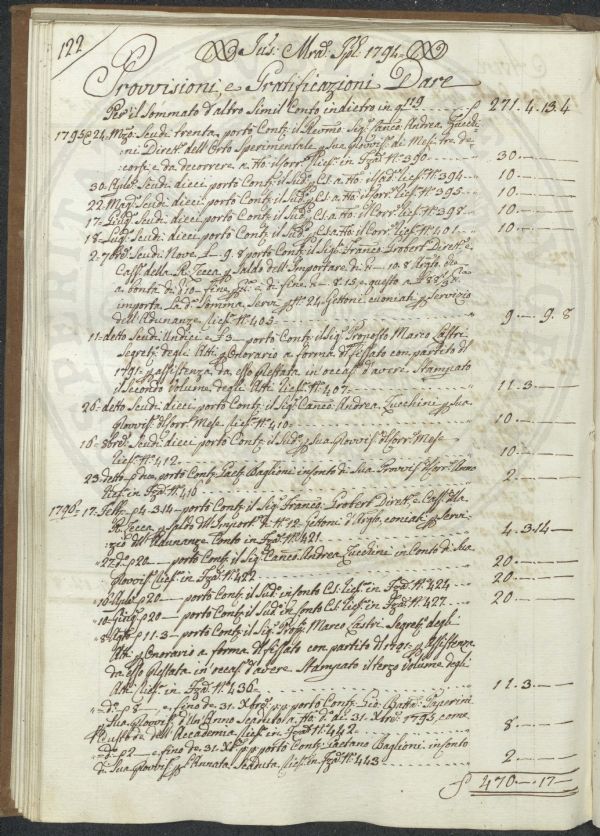 122
Jus: Mrd: Jpl: 1794
Provvisioni, e Gratificazioni Dare
Per il Sommato d'altro Simil Conto indietro in q.119 271.4.13.4
1795 24. Mzo Scudi trenta porto Cont. il Revmo Sigr. Canco. Andrea Zucchi
ni Dirett. dell'Orto Sperimentale p sua Provvis. di Mesi tre de
corsi, e da decorrere a tto il corr. lies. in Fza N. 390 30
30. Aple Scudi dieci porto Cont. il Sud. Cs. a tto il corr. lies. N. 394 10
22. Mago Scudi dieci porto Cont. il Sud. Cs. a tto il corr. lies. N. 395 10
17. Giug. Scudi dieci porto Cont. il Sud. Cs. a tto il corr. lies. N. 398 10
18. Lug. Scudi dieci porto Cont. il Sud. Cs. a tto il corr. lies. N. 401 10
2. 7bre Scudi Nove, L 9.8 porto Cont. il Sigr. Franco Grobert Dirett. e
Cass. della R. Zecca p Saldo dell'Importare di 10.8 Argto che
a bontà di fine e di fine 8.15 e questo a
importa la da Somma, Servi p N. 24 Gettoni cuoniati p servizio
dell'Adunanze lies. N. 405 9 9.8
11. detto Scudi Undici e 3 porto Cont. il Sigr. Proposto Marco Lastri
Segret. degli Atti p Onorario a forma del fissato con partito del
1791. p assistenza da esso Prestata in occas. d'avere Stampato
il Secondo Volume degli Atti lies. N. 407 11.3
26. detto Scudi dieci porto Cont. il Sigr. Canco. Andrea Zucchini p sua
Provvis. del corr. Mese lies. N. 410 10
16. 8bre Scudi dieci porto Cont. il Sud. p sua Provvis. del corr. Mese
lies. N. 412 10
23. detto due porto Cont. Gaet. Baglioni in conto di Sua Provvis. del corr. Anno
lies. in Fza N. 410 2
1796 17. Febb. p 4.3.14 porto Cont. il Sigr. Franco. Grobert Dirett. e Cass. della
R. Zecca p Saldo dell'Import. di N. 12 Gettoni d'Argto. coniati p servi
zio dell'Adunanze Conto in Fza N. 421 4.3.14
27. do. p 20 porto Cont. il Sigr. Canco. Andrea Zucchini in Conto di Sua
Provvis. lies. in Fza N. 422 20
10. Aple p 20 porto Cont. il Sud. in conto Cs. lies. in Fza N. 424 20
10. Giug. p 20 porto Cont. il Sud. in conto Cs. lies. in Fza N. 427 20
8. Agto p 11.3 porto Cont. il Sigr. Prop. Marco Lastri Segret. degli
Atti p Onorario a forma del fissato con partito del 1791 p Assistenza
da esso Prestata in occas. d'avere Stampato il terzo volume degli
Atti lies. in Fza N. 436 11.3
do. p 8 e, fino de 31. Xbre p p porto Cont. Gio. Batta. Paperini
p Sua Provvis. dell'Anno Scaduto a tto di 31. Xbre 1795, come
Custode dell'Accademia lies. in Fza N. 442 8
do. p 2 e fino de 31. Xbre p p porto Cont. Gaetano Baglioni in conto
di Sua Provvis. p l'Annata Scaduta lies. in Fza N. 443 2
470 17